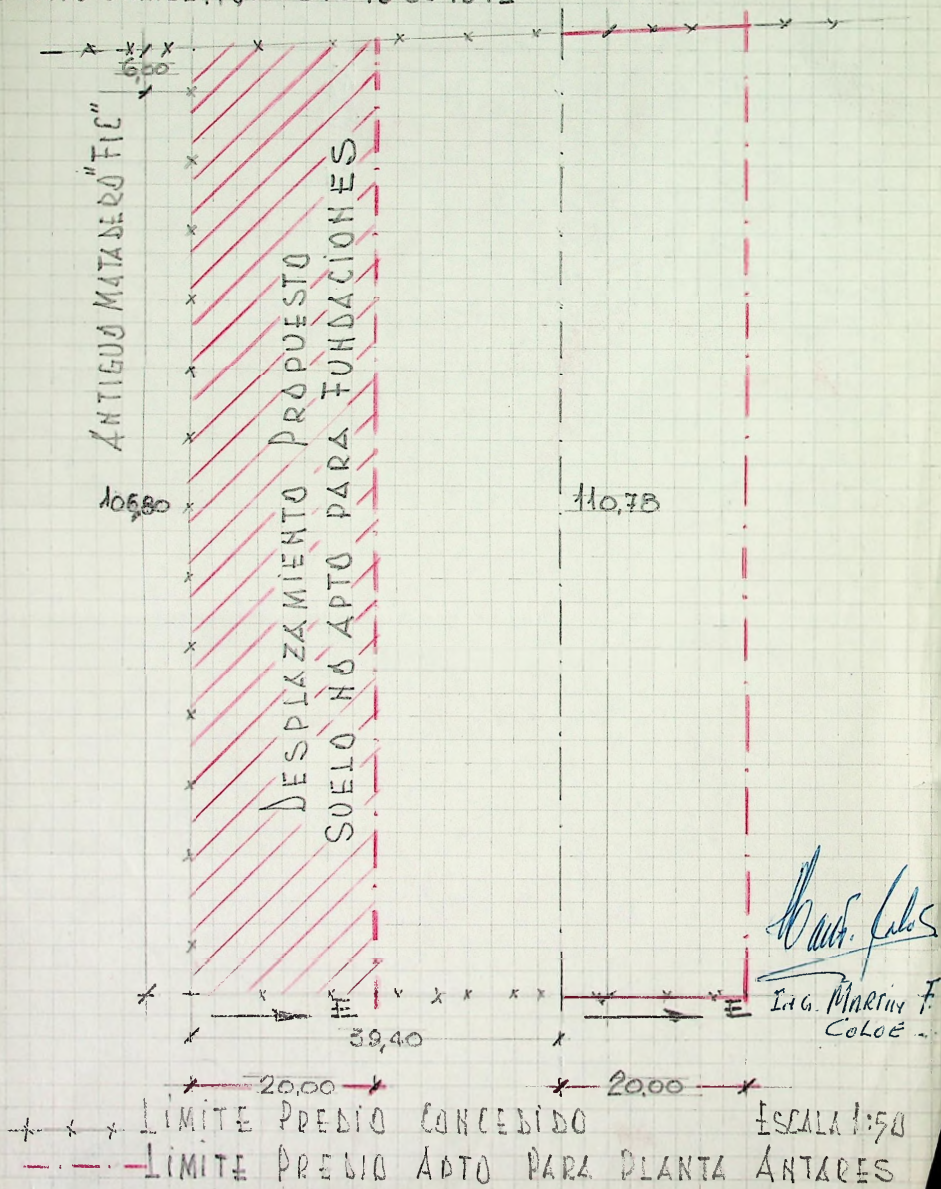 6,00
ANTIGUO MATADERO "FIE"
DESPLAZAMIENTO PROPUESTO
SUELO NO APTO PARA FUNDACIONES
106,80
110,78
E
E
39,40
20,00
20,00
ING. MARTIN F.
COLOE
LÍMITE PREDIO CONCEDIDO
ESCALA 1:50
LÍMITE PREDIO APTO PARA PLANTA ANTARES